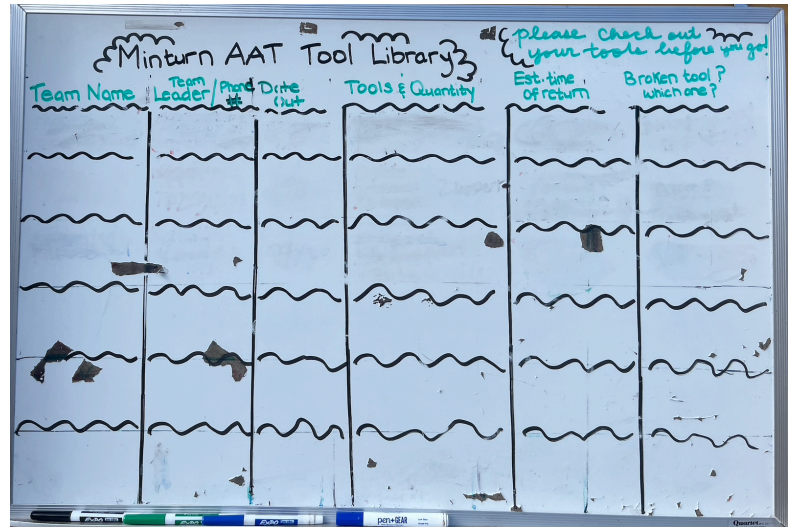 Minturn AAT Tool Library
please check out
your tools before you go!
Team Name
Team
Leader/Phone
#
Date
Out
Tools & Quantity
Est. time
of return
Broken tool?
which one?
EXPO
EXPO
EXPO
pen+GEAR
Quartet